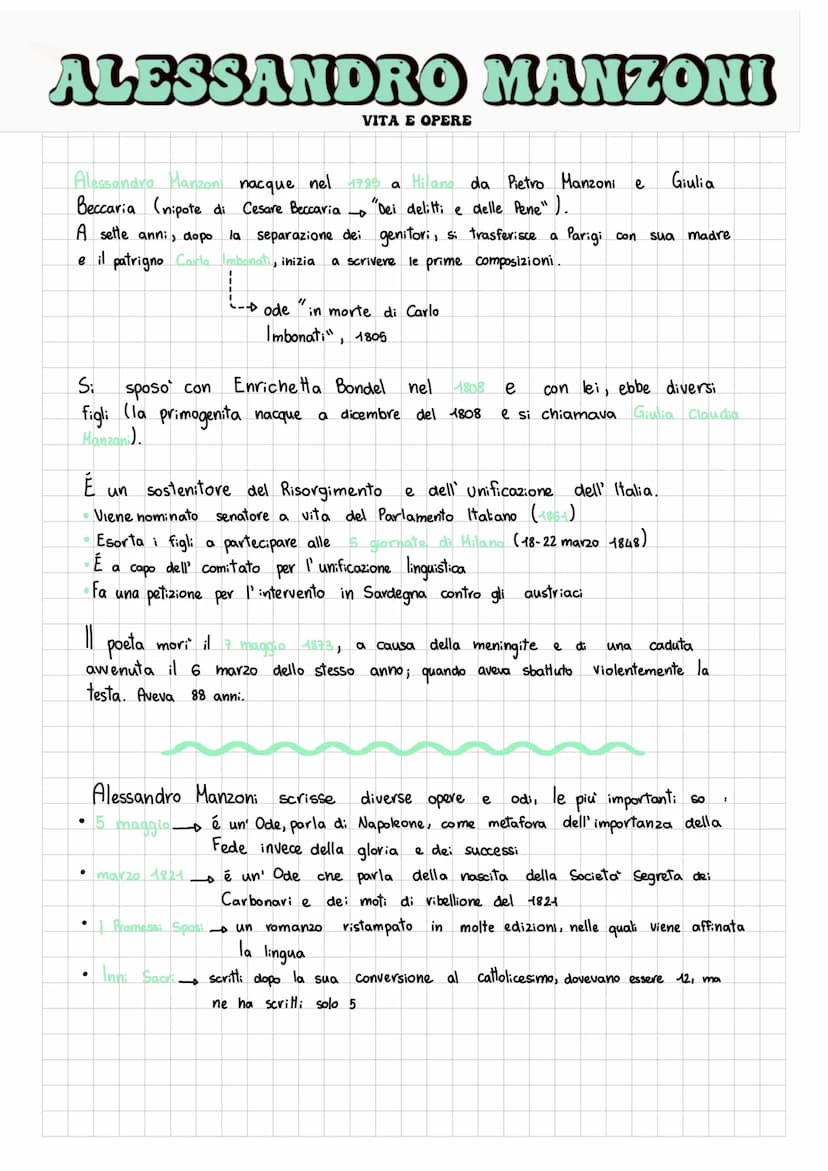 ALESSANDRO MANZONI
VITA E OPERE
Alessandro Manzoni nacque nel 1785 a Milano da Pietro Manzoni e Giulia
Beccaria (nipote di Cesare Beccaria → "Dei delitti e delle Pene").
A sette anni, dopo la separazione dei genitori, si trasferisce a Parigi con sua madre
e il patrigno Carlo Imbonati, inizia a scrivere le prime composizioni.
ode "in morte di Carlo
Imbonati", 1806
Si sposò con Enrichetta Bondel nel 1808 e con lei, ebbe diversi
figli (la primogenita nacque a dicembre del 1808 e si chiamava Giulia Claudia
Manzoni).
É un sostenitore del Risorgimento e dell' unificazione dell' Italia.
• Viene nominato senatore a vita del Parlamento Italano (1861)
• Esorta i figli a partecipare alle 5 giornate di Milano (18-22 marzo 1848)
• É a capo dell' comitato per l'unificazione linguistica
• Fa una petizione per l'intervento in Sardegna contro gli austriaci
Il poeta morì il 7 maggio 1873, a causa della meningite e di una caduta
avvenuta il 6 marzo dello stesso anno; quando aveva sbattuto violentemente la
testa. Aveva 88 anni.
Alessandro Manzoni scrisse diverse opere e odi, le più importanti so :
• 5 maggio → é un' Ode, parla di Napoleone, come metafora dell'importanza della
Fede invece della gloria e dei successi
• marzo 1821 → é un' Ode che parla della nascita della Società Segreta dei
Carbonari e dei moti di ribellione del 1821
• I Promessi Sposi → un romanzo ristampato in molte edizioni, nelle quali viene affinata
la lingua
• Inni Sacri → scritti dopo la sua conversione al cattolicesimo, dovevano essere 12, ma
ne ha scritti solo 5